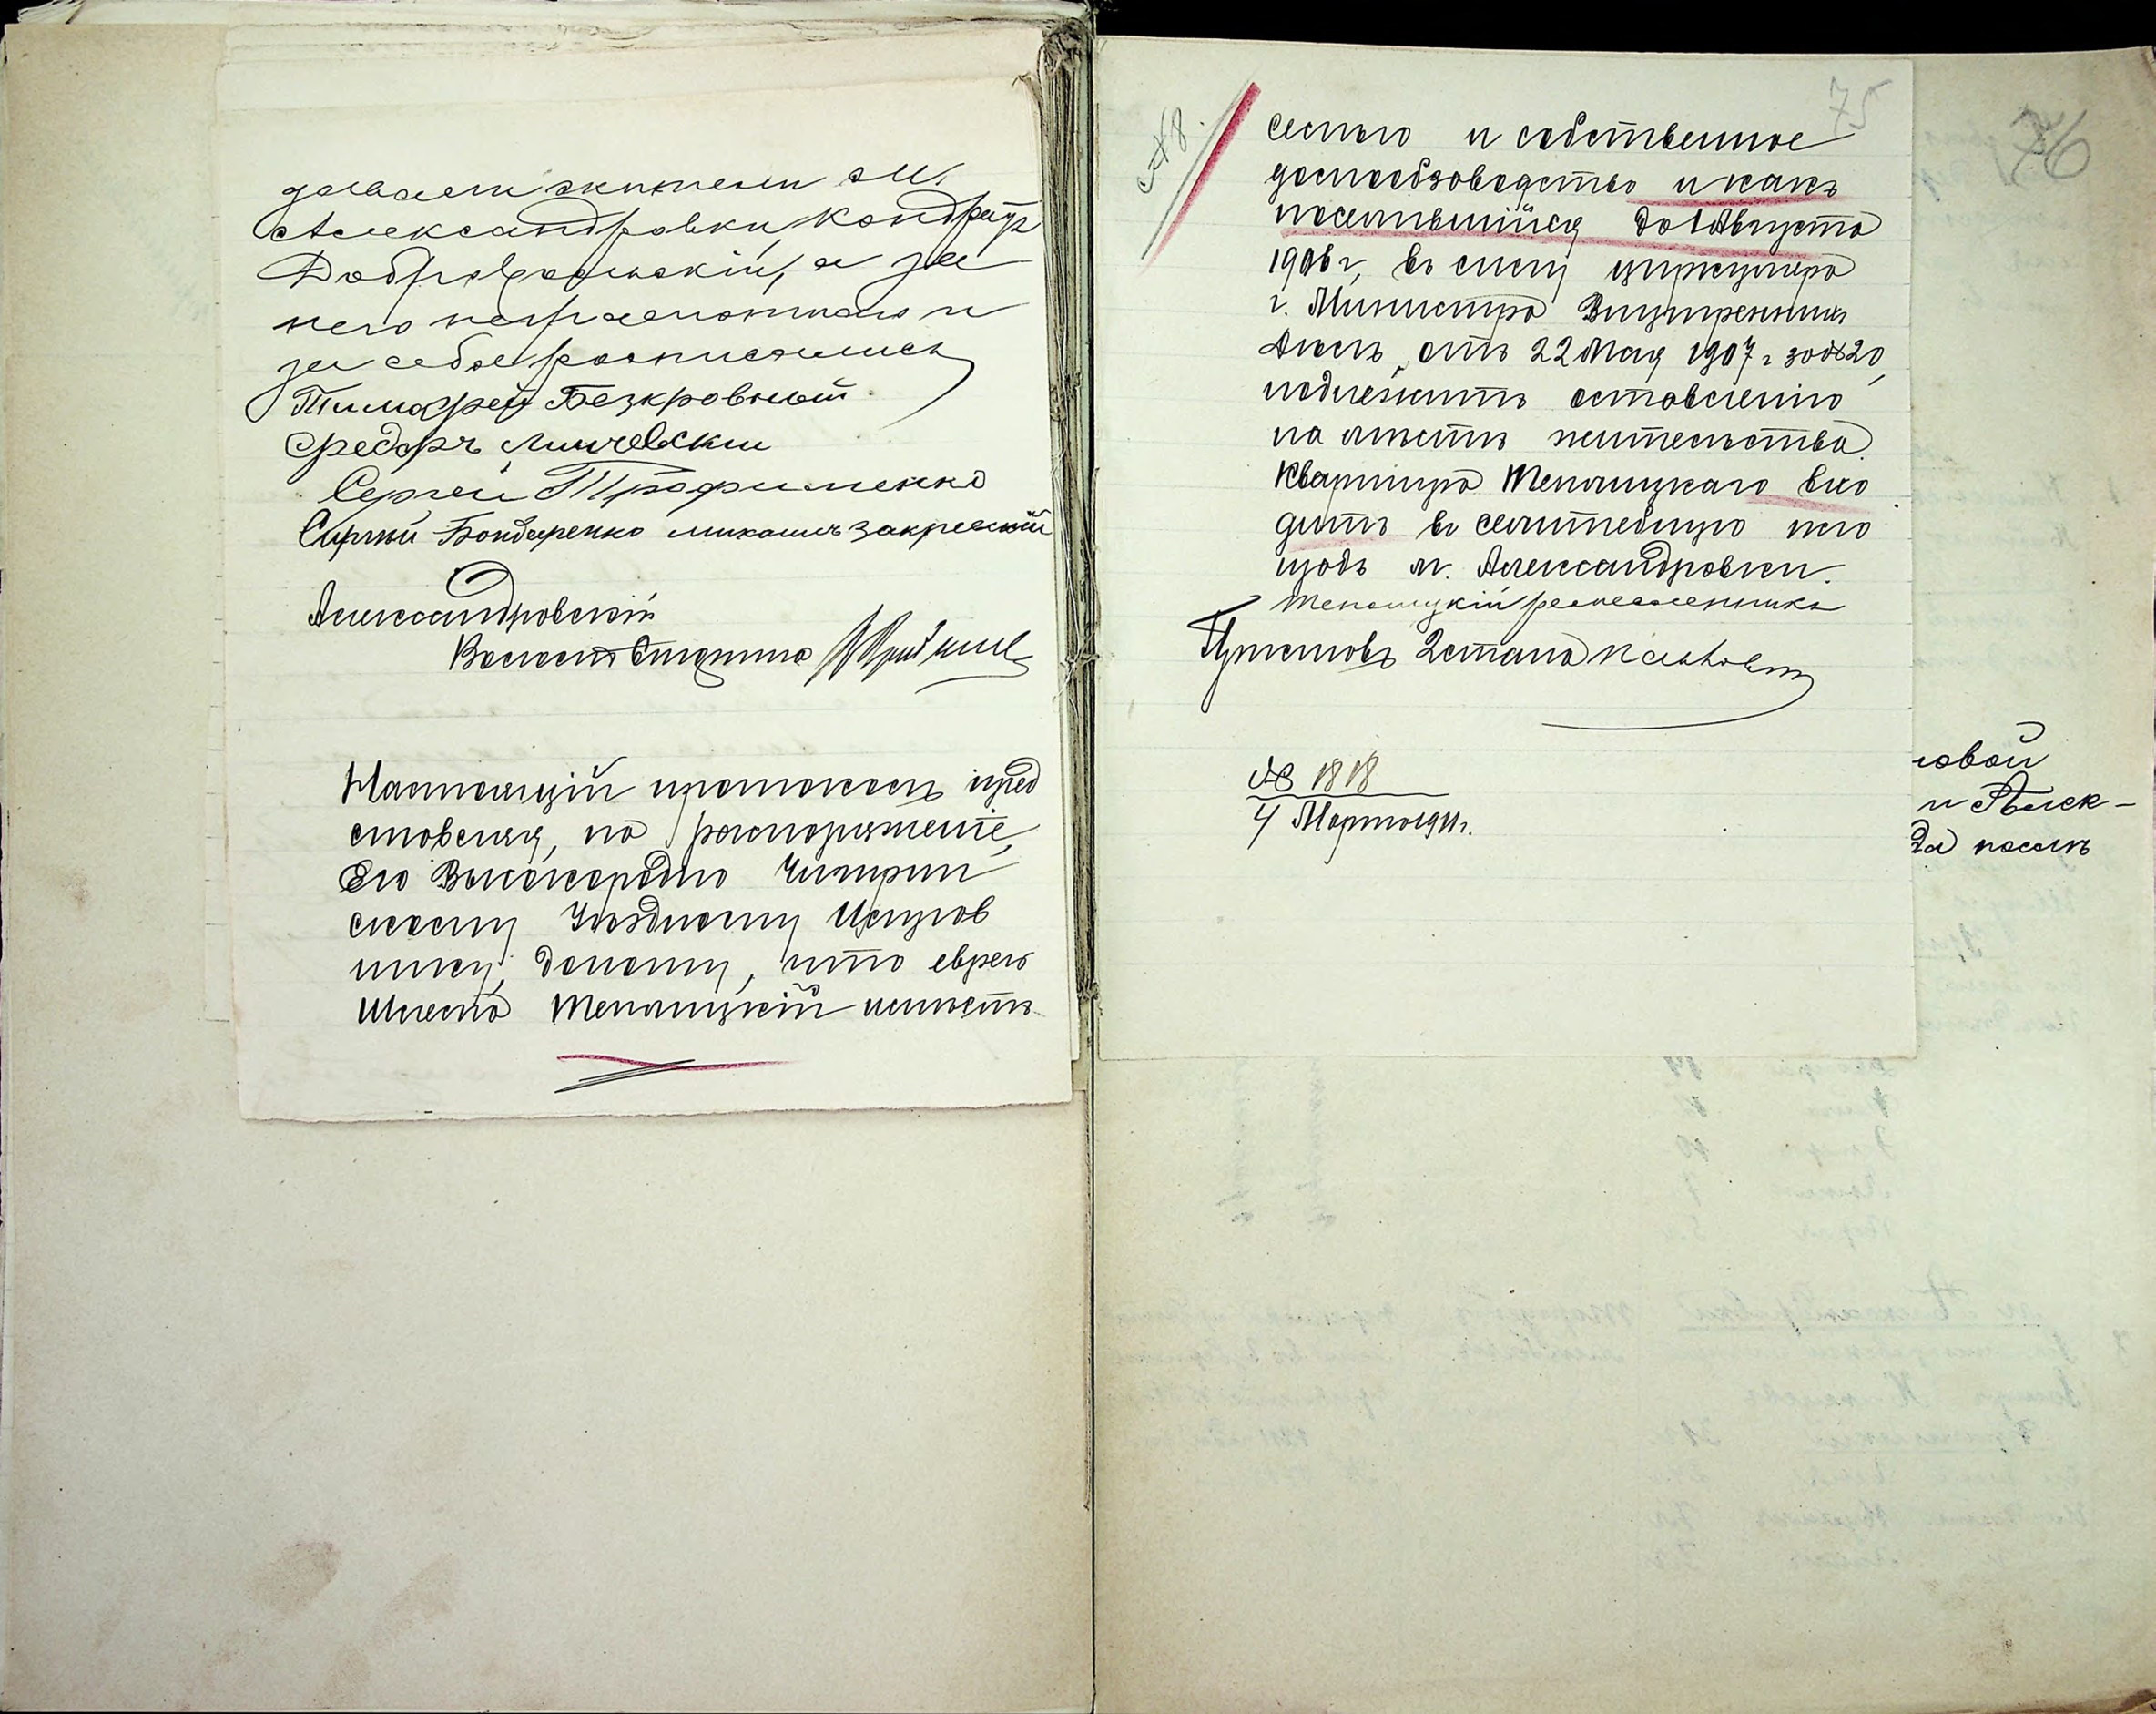 жители м.
Александровки, Кондратъ
Добровольскій, а за
него неграмотнаго и
за себя росписались
Тимофей Безкровный
Федоръ
Сергей Трофименко
Сергей Бондаренко михаилъ Закревский
Александровскій
Волост. Старшина
Настоящій протоколъ пред
ставляя, на распоряженіе,
Его Высокородію Чигирин
скому Уѣздному Исправ
нику, доношу, что еврей
Шлема Теплицкій имѣетъ
75
№ 8.
семью и собственное
домообзаводство и какъ
поселившійся до 1 Августа
1906 г, въ силу циркуляра
г. Министра Внутреннихъ
Дѣлъ, отъ 22 Мая 1907 г за № 20,
подлежитъ оставленію
на мѣстѣ жительства.
Квартира Теплицкаго вхо
дитъ въ селитебную пло
щадь м. Александровки.
Теплицкій ремесленникъ
Приставъ 2 стана
№ 1818
4 Марта 1911 г.
76
ловой
и Алек-
да